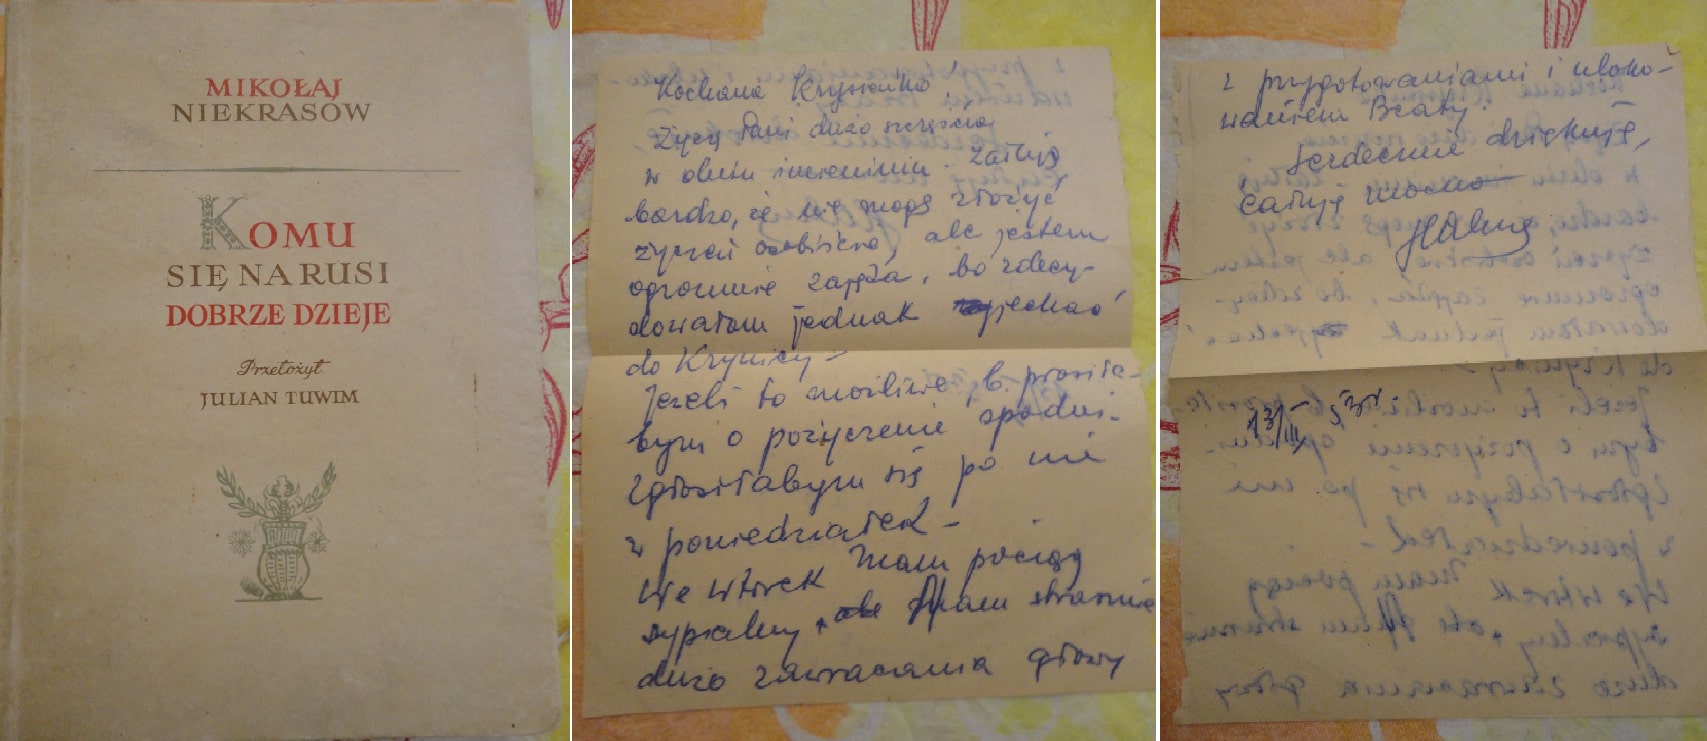 MIKOŁAJ
NIEKRASOW
KOMU
SIĘ NA RUSI
DOBRZE DZIEJE
Przełożył
JULIAN TUWIM
Kochana Krysieńko
Życzę Pani dużo szczęścia
w dniu imienin. Żałuję
bardzo, że nie mogę złożyć
życzeń osobiście, ale jestem
ogromnie zajęta, bo zdecy-
dowałam jednak wyjechać
do Krynicy -
Jeżeli to możliwe, b. prosiła-
bym o pożyczenie spodni.
Zgłosiłabym się po nie
w poniedziałek -
We wtorek mam pociąg
sypialny, Mam strasznie
dużo zawracania głowy
z przygotowaniami i uloko-
waniem Beaty.
Serdecznie dziękuję,
całuję mocno
13/III